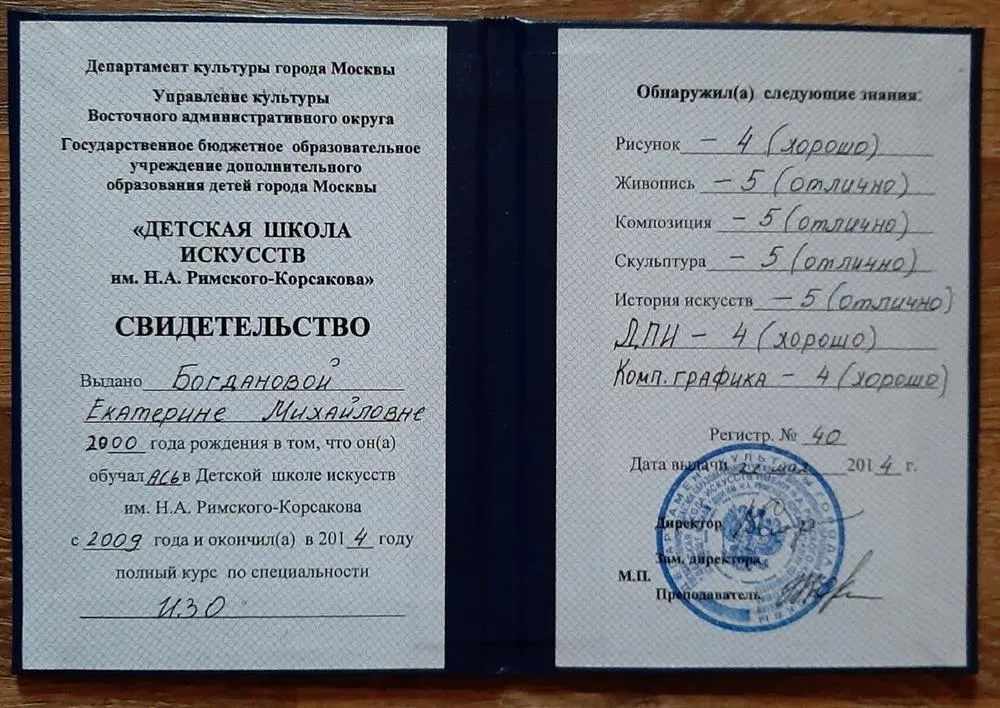 Департамент культуры города Москвы
Управление культуры
Восточного административного округа
Государственное бюджетное образовательное
учреждение дополнительного
образования детей города Москвы
«ДЕТСКАЯ ШКОЛА
ИСКУССТВ
им. Н.А. Римского-Корсакова»
СВИДЕТЕЛЬСТВО
Выдано Богдановой
Екатерине Михайловне
2000 года рождения в том, что он(а)
обучалась в Детской школе искусств
им. Н.А. Римского-Корсакова
с 2009 года и окончил(а) в 2014 году
полный курс по специальности
ИЗО
Обнаружил(а) следующие знания:
Рисунок – 4 (хорошо)
Живопись – 5 (отлично)
Композиция – 5 (отлично)
Скульптура – 5 (отлично)
История искусств – 5 (отлично)
ДПИ – 4 (хорошо)
Комп. графика – 4 (хорошо)
Регистр. № 40
Дата выдачи мая 2014 г.
Директор
Зам. директора
М.П.
Преподаватель